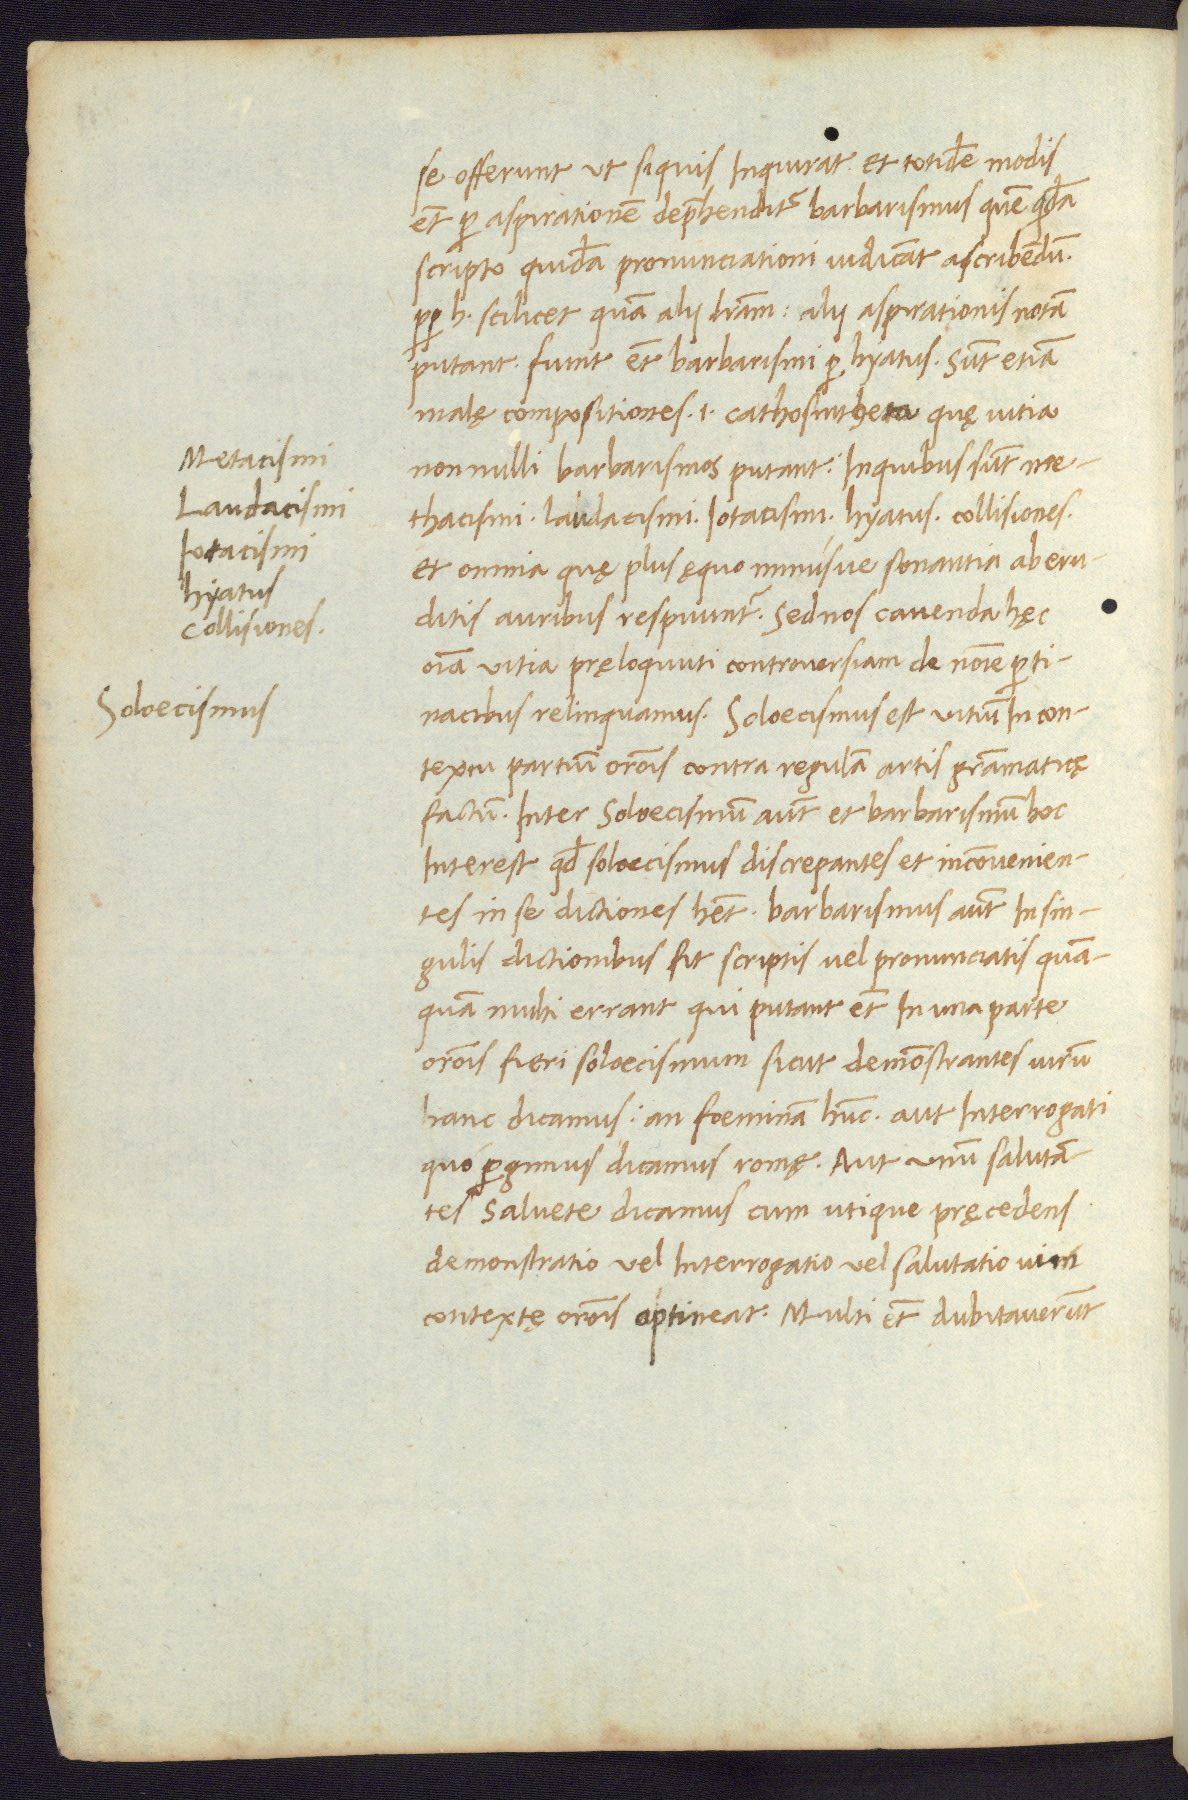 se offerunt ut siquis Inquirat. Et totidē modis
et̄ ꝑ aspirationē dep̄henditᷣ barbarismus quē qdā
scripto quidā pronunciationi iudicāt ascribēdū.
ꝓꝑ h. scilicet quā alij lr̄am: alij aspirationis notā
putant. fiunt et̄ barbarismi ꝑ hyatus. Sūt etiā
malę compositiones. i. cathosintheta quę uitia
non nulli barbarismos putant: Inquibus sūt me-
thacismi. laudacismi. Iotacismi. hyatus. collisiones.
et omnia quę plus ęquo minúsue sonantia aberu-
ditis auribus respuuntᷣ. Sed nos cauenda hęc
oīa vitia pręloquuti controuersiam de noīe ꝑti-
nacibus relinquamus. Soloecismus est vitiū In con-
textu partiū orōis contra regulā artis grāmaticę
factū. Inter Soloecismū aut̄ et barbarismū hoc
Interest qd̄ soloecismus discrepantes et incōuenien-
tes in se dictiones hēt. barbarismus aut̄ In sin-
gulis dictionibus fit scriptis uel pronunciatis quā-
quā multi errant qui putant et̄ In una parte
orōis fieri soloecismum sicut demōstrantes uirū
hanc dicamus: an foeminā hūc. aut Interrogati
quó ꝑgimus dicamus romę. Aut vnū salutā-
tes Saluete dicamus cum utique pręcedens
demonstratio vel Interrogatio vel salutatio uim
contextę orōis optineat. Multi et̄ dubitauerūt
Metacismi
Laudacismi
Iotacismi
hyatus
Collisiones.
Soloecismus